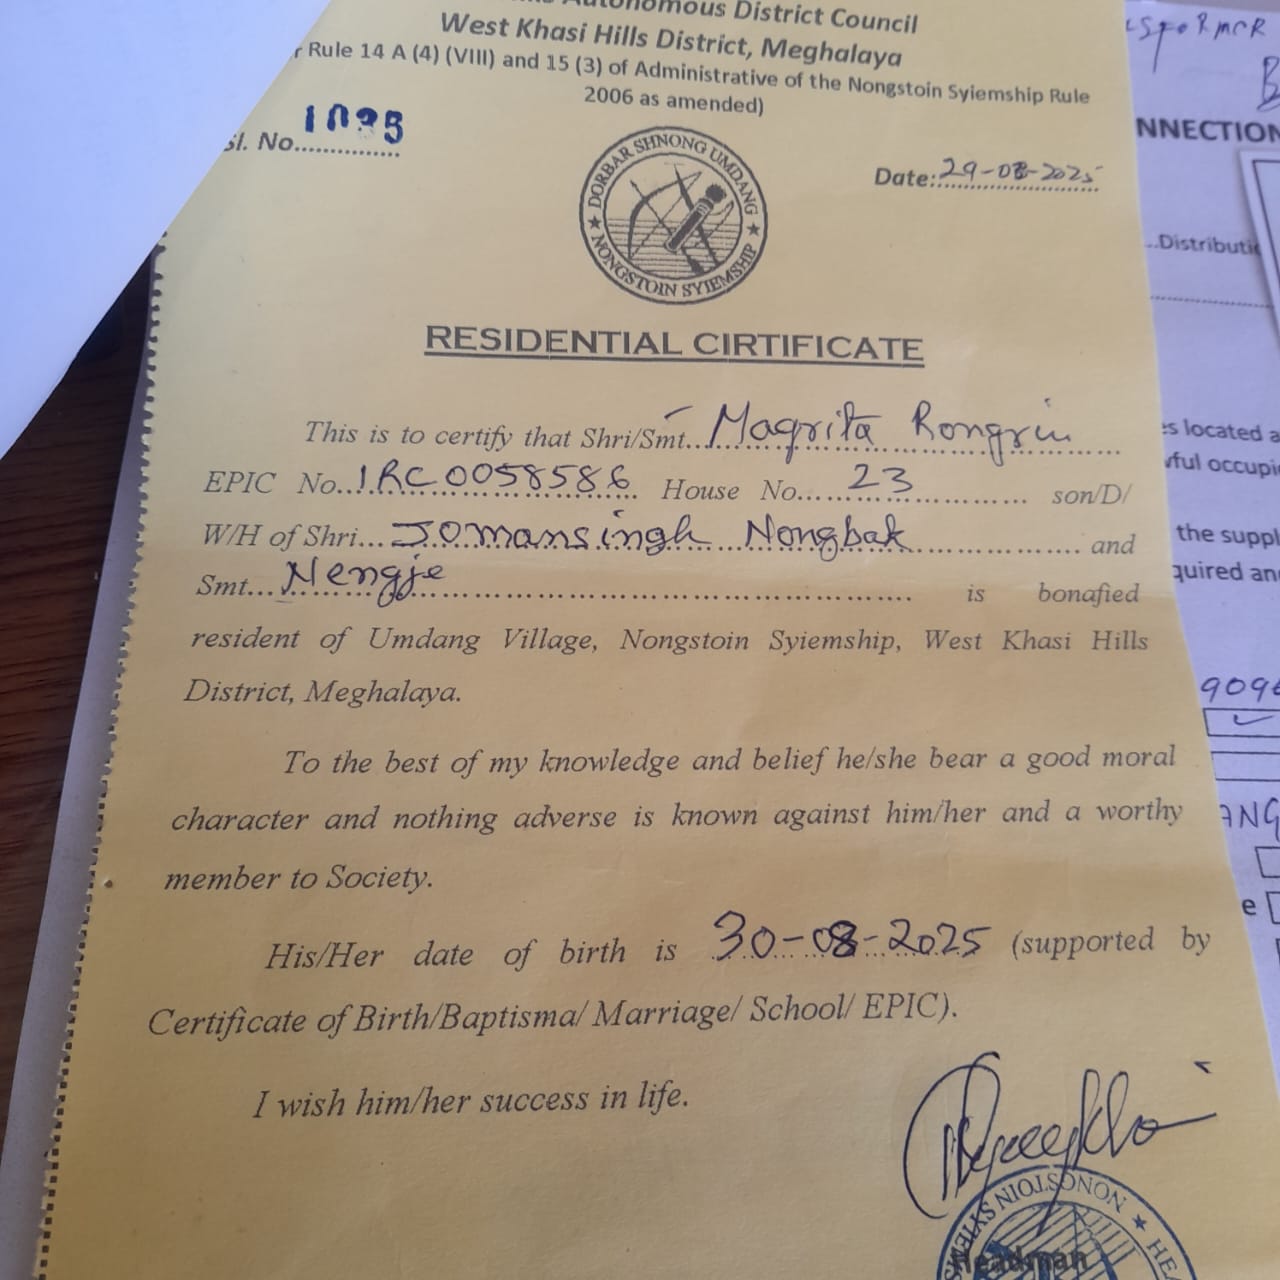 Autonomous District Council
West Khasi Hills District, Meghalaya
Rule 14 A (4) (VIII) and 15 (3) of Administrative of the Nongstoin Syiemship Rule
2006 as amended)
Sl. No. 1035
Date: 29-08-2025
DORBAR SHNONG UMDANG
NONGSTOIN SYIEMSHIP
RESIDENTIAL CIRTIFICATE
This is to certify that Shri/Smt... Magrita Rongrin
EPIC No... IRC0058586 House No... 23 son/D/
W/H of Shri... Jomansingh Nongbak and
Smt... Nengje is bonafied
resident of Umdang Village, Nongstoin Syiemship, West Khasi Hills
District, Meghalaya.
To the best of my knowledge and belief he/she bear a good moral
character and nothing adverse is known against him/her and a worthy
member to Society.
His/Her date of birth is 30-08-2025 (supported by
Certificate of Birth/Baptisma/ Marriage/ School/ EPIC).
I wish him/her success in life.
NONGSTOIN
Headman
NNECTION
Distributi
s located a
vful occupi
the suppl
quired an
909
ANG
e